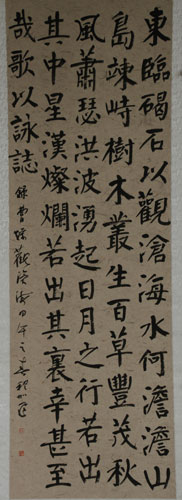 東臨碣石以觀滄海水何澹澹山
島竦峙樹木叢生百草豐茂秋
風蕭瑟洪波湧起日月之行若出
其中星漢燦爛若出其裏幸甚至
哉歌以詠誌
錄曹操觀滄海